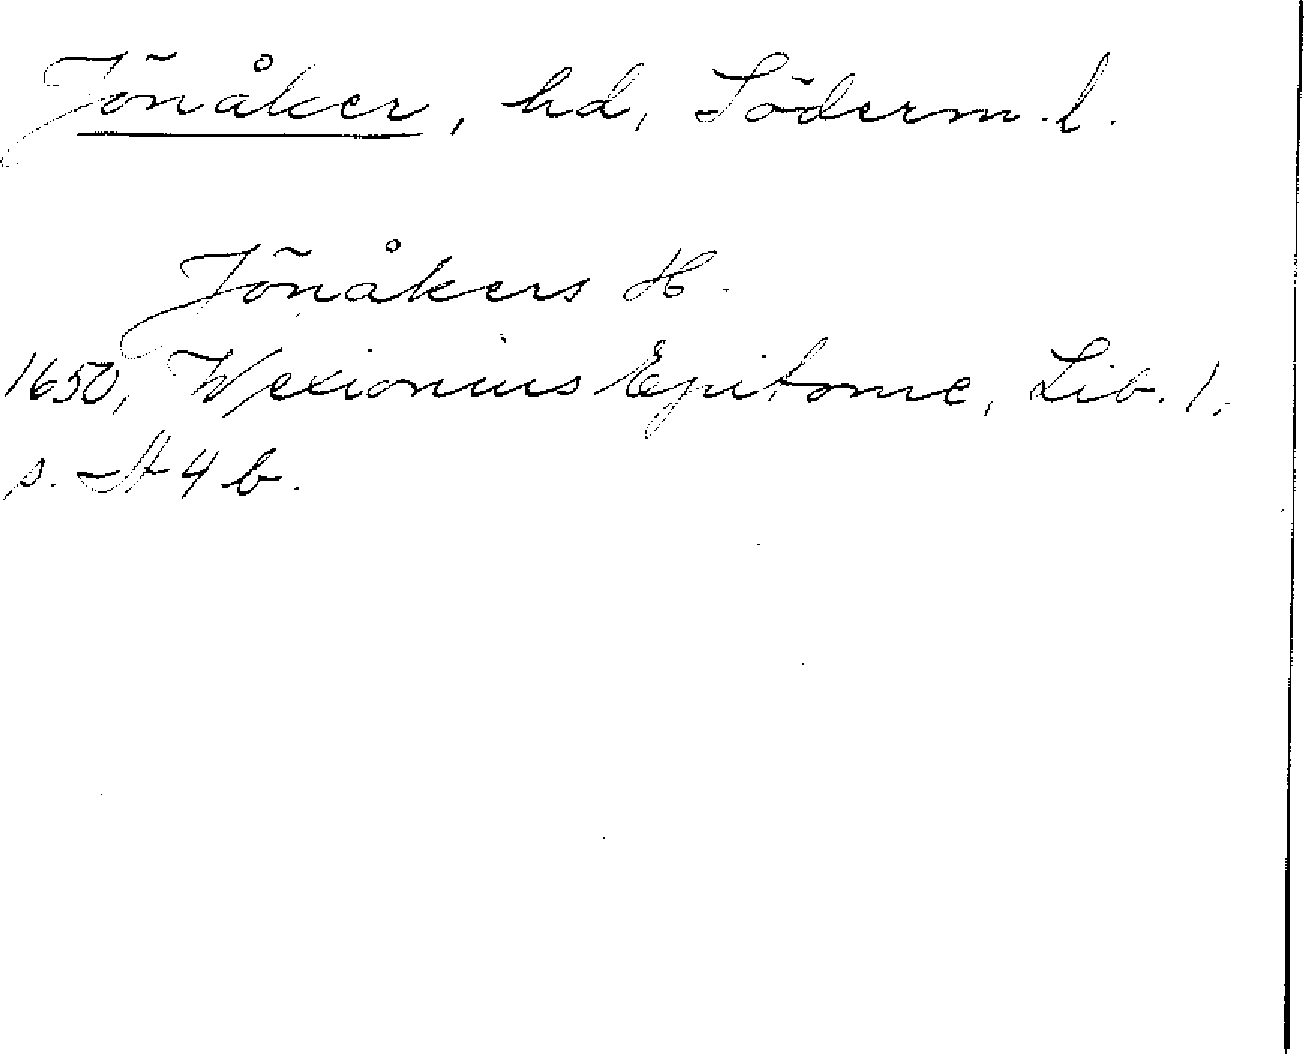 Jönåker, hd, Söderm. l.
Jönåkers H.
1650, Wexionius Epitome, Lib. 1,
s. A 4 b.